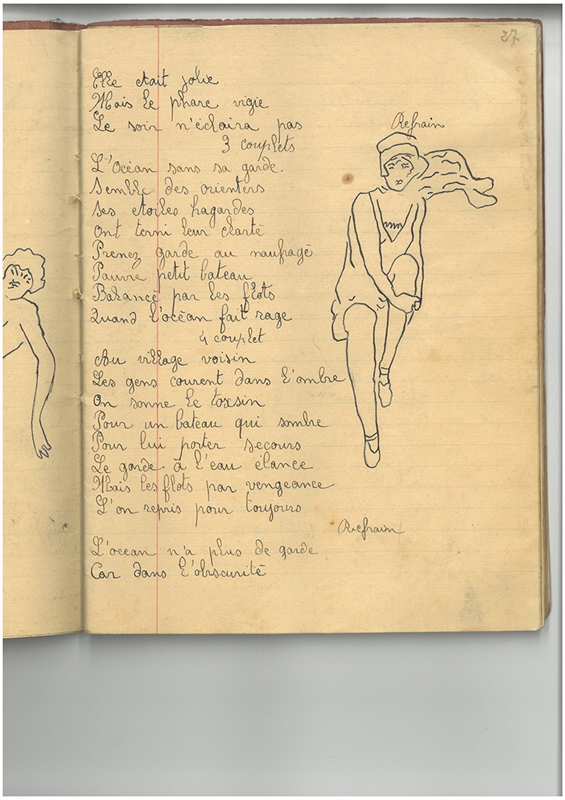 27
Elle était jolie
Mais le phare vigie
Le soir n'éclaira pas
Refrain
3 couplets
L'Océan sans sa garde
Semble des orienters
Ses etoiles hagardes
Ont terni leur clarté
Prenez garde au naufragé
Pauvre petit bateau
Balancé par les flots
Quand l'océan fait rage
4 couplet
Au village voisin
Les gens courent dans l'ombre
On sonne le toxsin
Pour un bateau qui sombre
Pour lui porter secours
Le garde à l'eau elance
Mais les flots par vengeance
L'on repris pour toujours
Refrain
L'ocean n'a plus de garde
Car dans l'obscurité